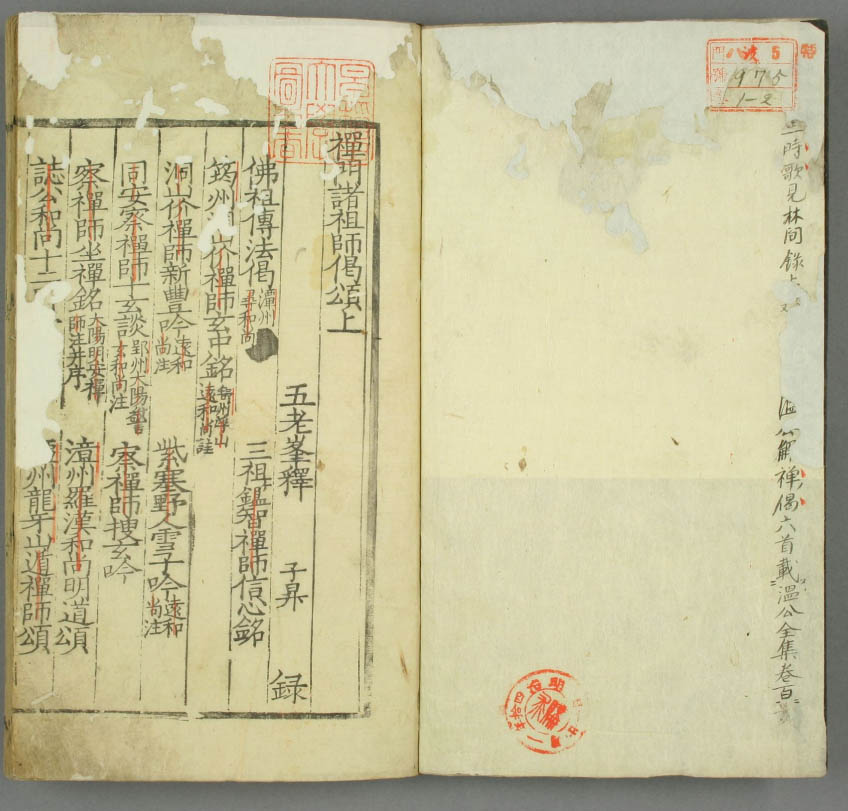 特
八 5
975
1-2
二時歌見林間錄上
温公解禪偈六首載温公全集卷百
明治四拾
禪門諸祖師偈頌上
五老峯釋 子昇 録
佛祖傳法偈 潭州 和尚
三祖鑑智禪師信心銘
筠州洞 价禪師玄中銘 遠和尚註
洞山价禪師新豐吟 遠和尚注
紫塞野人雪子吟 遠和尚注
同安察禪師十玄談 郢州大陽 玄和尚注
察禪師搜玄吟
察禪師坐禪銘 大陽明安禪師注并序
漳州羅漢和尚明道頌
誌公和尚十二
州龍牙山遁禪師頌